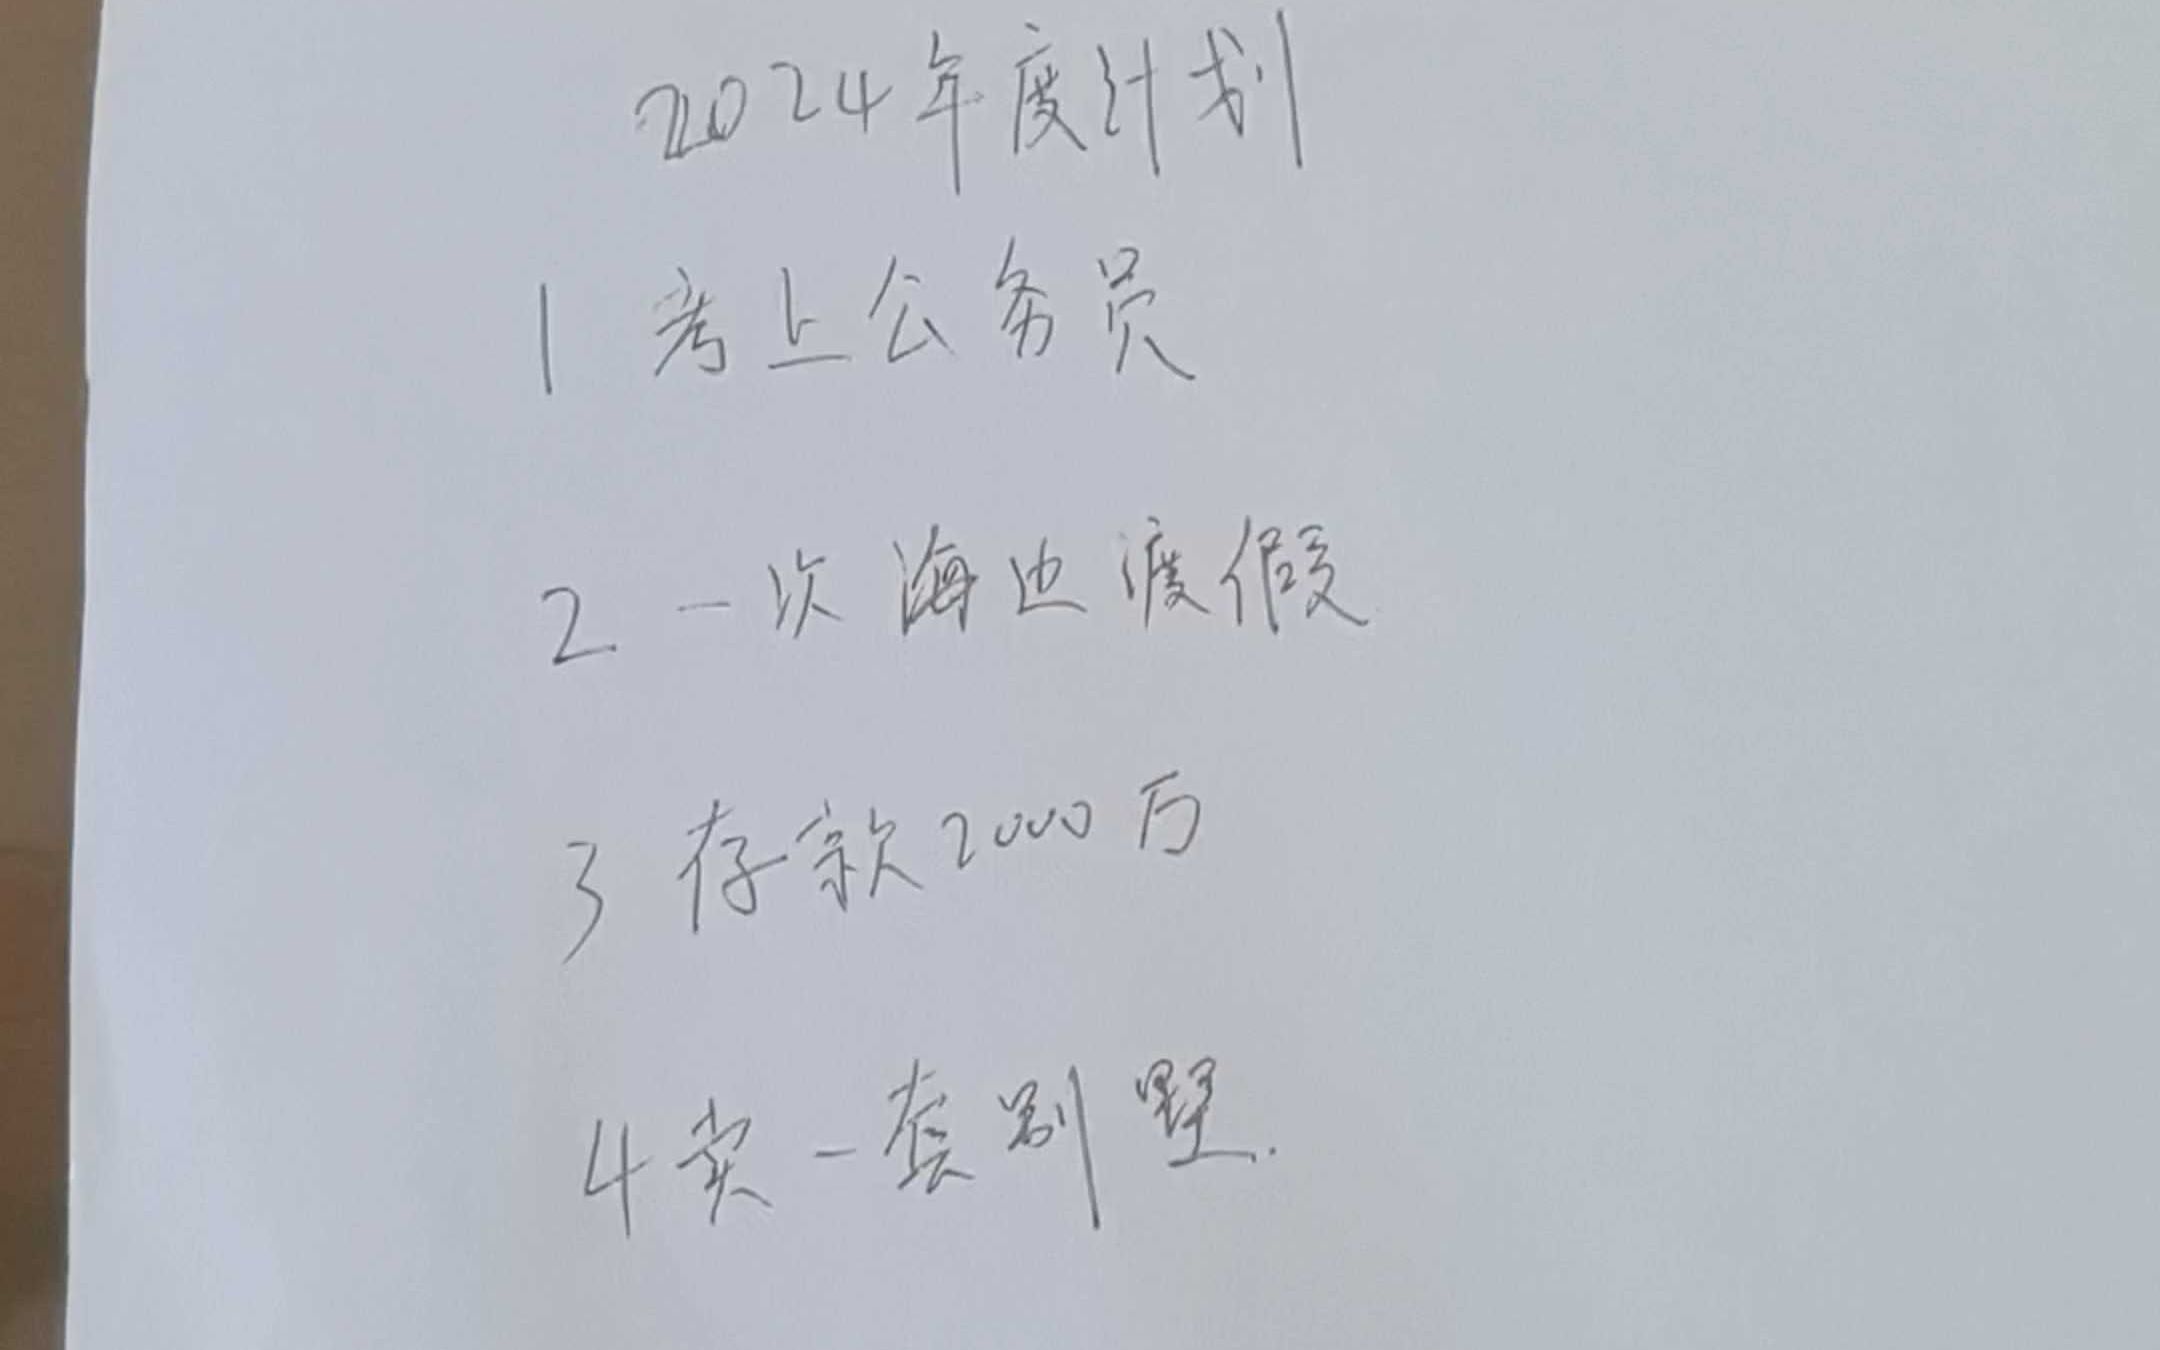 2024年度计划
1 考上公务员
2 一次海边渡假
3 存款2000万
4 卖一套别墅.